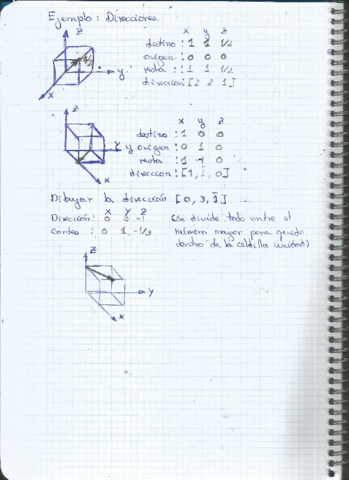 Ejemplo: Direcciones
z
y
x
1/2
x y z
destino : 1 1 1/2
origen : 0 0 0
resta : 1 1 1/2
dirección [2 2 1]
z
y
x
x y z
destino : 1 0 0
y origen : 0 1 0
resta : 1 -1 0
direccion : [1, 1̄, 0]
Dibujar la dirección [0, 3, 1̄]
x y z
Dirección: 0 3 -1 (se divide todo entre el
cortes : 0 1 -1/3 número mayor para quede
dentro de la celdilla unidad)
z
y
x